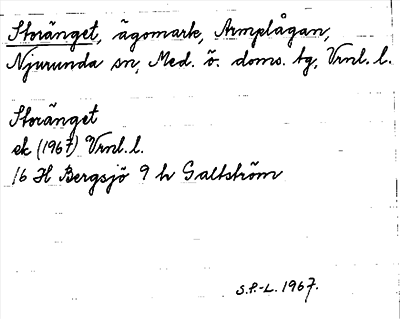 Storänget, ägomark, Armplågan,
Njurunda sn, Med. ö. doms. tg, Vrnl. l.
Storänget
ek (1967) Vrnl. l.
16 H Bergsjö 9 h Galtström
S.P.-L. 1967.